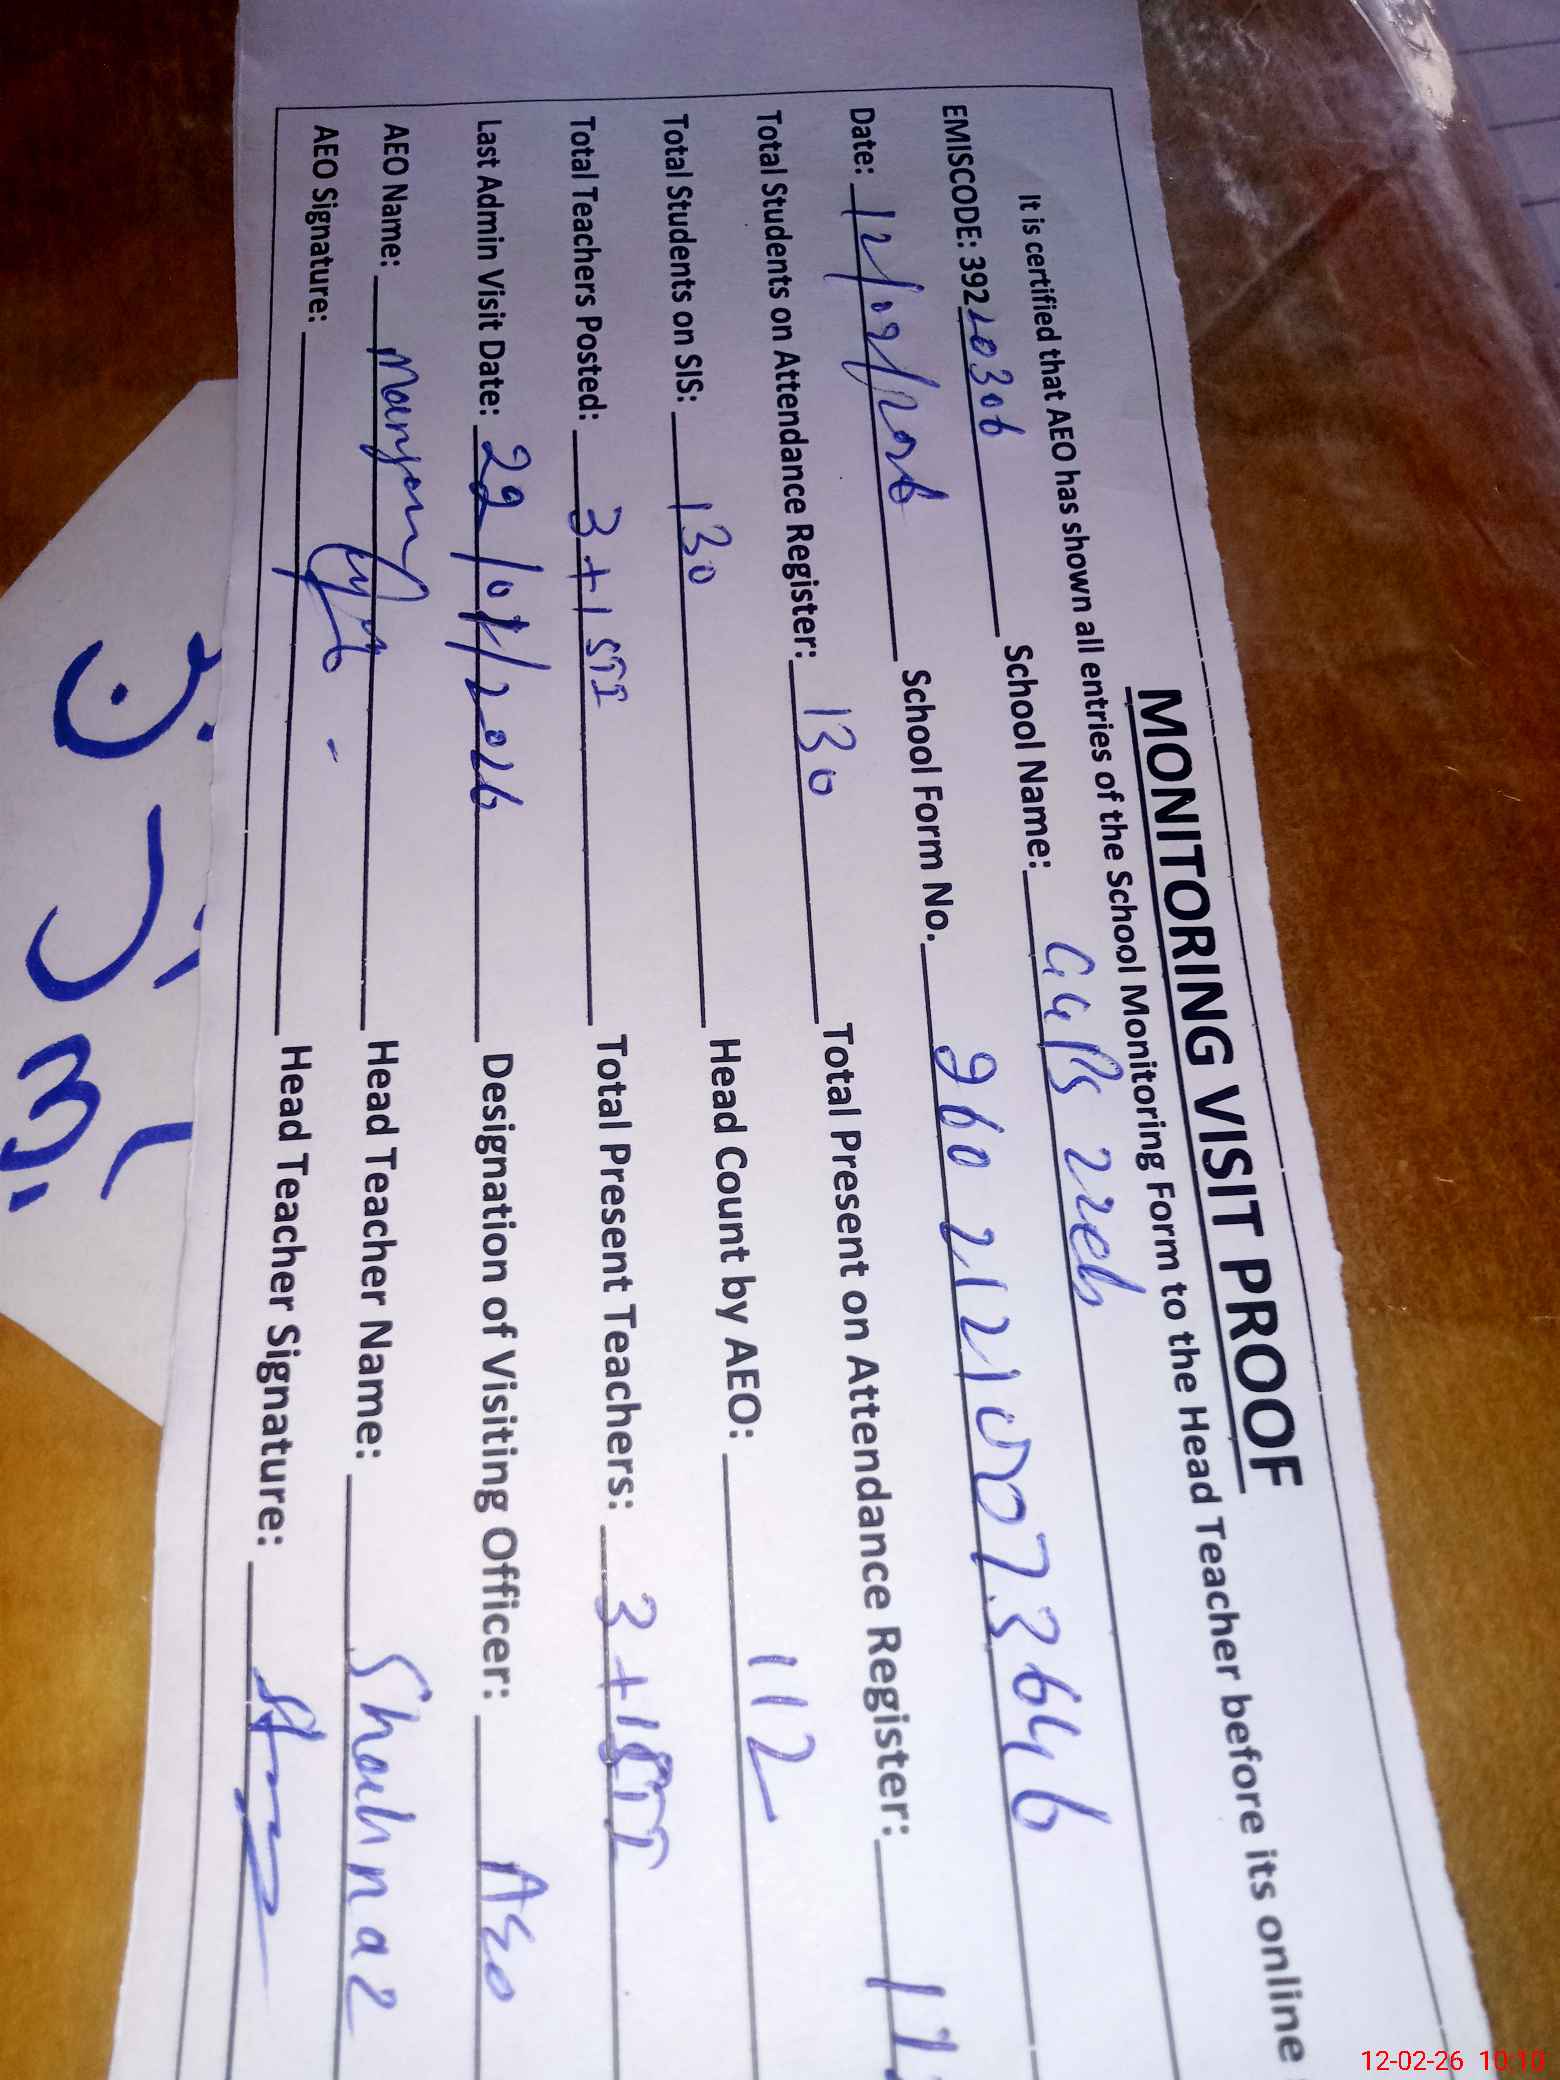 MONITORING VISIT PROOF
It is certified that AEO has shown all entries of the School Monitoring Form to the Head Teacher before its online
EMISCODE: 39210306 School Name: GGPS 22eb
Date: 12/02/2026 School Form No. 960 2121507 3646
Total Students on Attendance Register: 130 Total Present on Attendance Register: 11
Total Students on SIS: 130 Head Count by AEO: 112
Total Teachers Posted: 3+1 STI Total Present Teachers: 3+1STI
Last Admin Visit Date: 22/01/2026 Designation of Visiting Officer: AEO
AEO Name: Maryam Head Teacher Name: Shahnaz
AEO Signature: Head Teacher Signature:
12-02-26 10:10